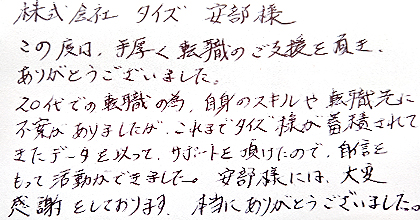 株式会社 タイズ 安部様
この度は、手厚く転職のご支援を頂き、
ありがとうございました。
20代での転職の為、自身のスキルや転職先に
不安がありましたが、これまでタイズ様が蓄積されて
きたデータを以って、サポートを頂けたので、自信を
もって活動ができました。安部様には、大変
感謝をしております。本当にありがとうございました。